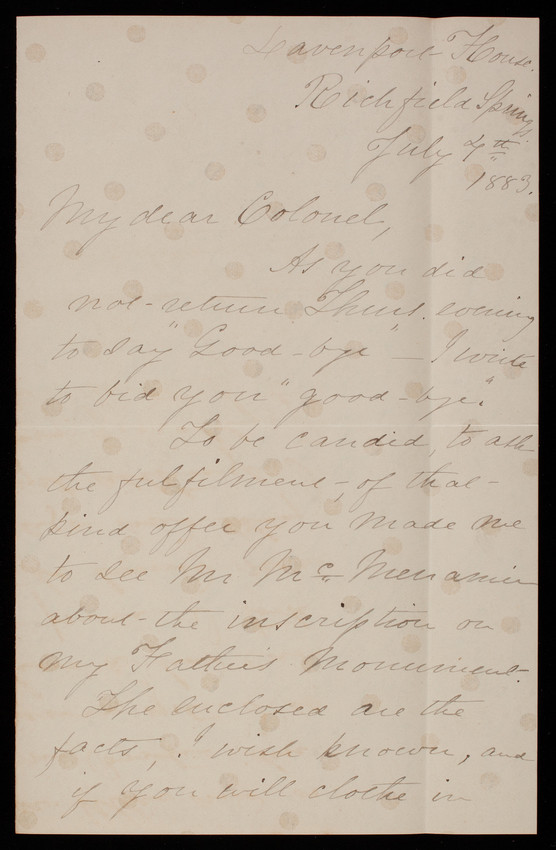 Davenport House.
Richfield Springs.
July 4th
1883.
My dear Colonel,
As you did
not return Thurs. evening
to say "Good-bye" – I write
to bid you "good-bye."
To be candid, to ask
the fulfilment, of that
kind offer you made me
to see Mr McMenamin
about the inscription on
my Father's Monument.
The enclosed are the
facts, I wish known, and
if you will clothe in